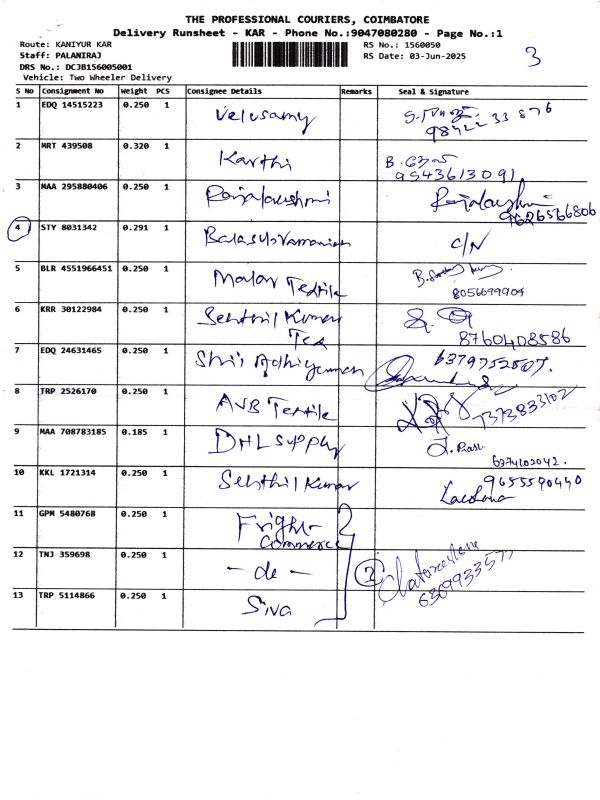 THE PROFESSIONAL COURIERS, COIMBATORE
Delivery Runsheet - KAR - Phone No.:9047080280 - Page No.:1
Route: KANIYUR KAR
Staff: PALANIRAJ
DRS No.: DCJB156005001
Vehicle: Two Wheeler Delivery
RS No.: 1560050
RS Date: 03-Jun-2025
3
S No Consignment No Weight PCS Consignee Details Remarks Seal & Signature
1 EDQ 14515223 0.250 1 Velusamy
2 MRT 439508 0.320 1 Karthi
9543613091
3 MAA 295880406 0.250 1 Rajalakshmi Rajalakshmi
9626566806
4 STY 8031342 0.291 1 Balasubramaniam C/N
5 BLR 4551966451 0.250 1 Malar Textile
8056699904
6 KRR 30122984 0.250 1 Senthil Kumar
Tex
8760408586
7 EDQ 24631465 0.250 1 Shri Adhiyaman 6379752507.
8 TRP 2526170 0.250 1 AVB Textile 7373833102
9 MAA 708783185 0.185 1 DHL supply
6374203042.
10 KKL 1721314 0.250 1 Senthil Kumar 9655590440
11 GPM 5480768 0.250 1 Fright
Commerce
12 TNJ 359698 0.250 1 - do -
13 TRP 5114866 0.250 1 Siva